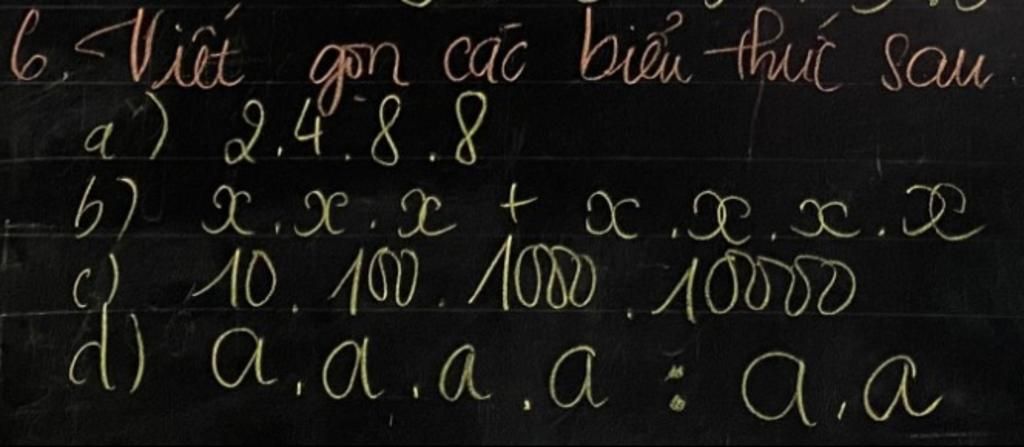 6. Viết gọn các biểu thức sau
a) 2.4.8.8
b) x.x.x + x.x.x.x
c) 10.100.1000.10000
d) a.a.a.a : a.a